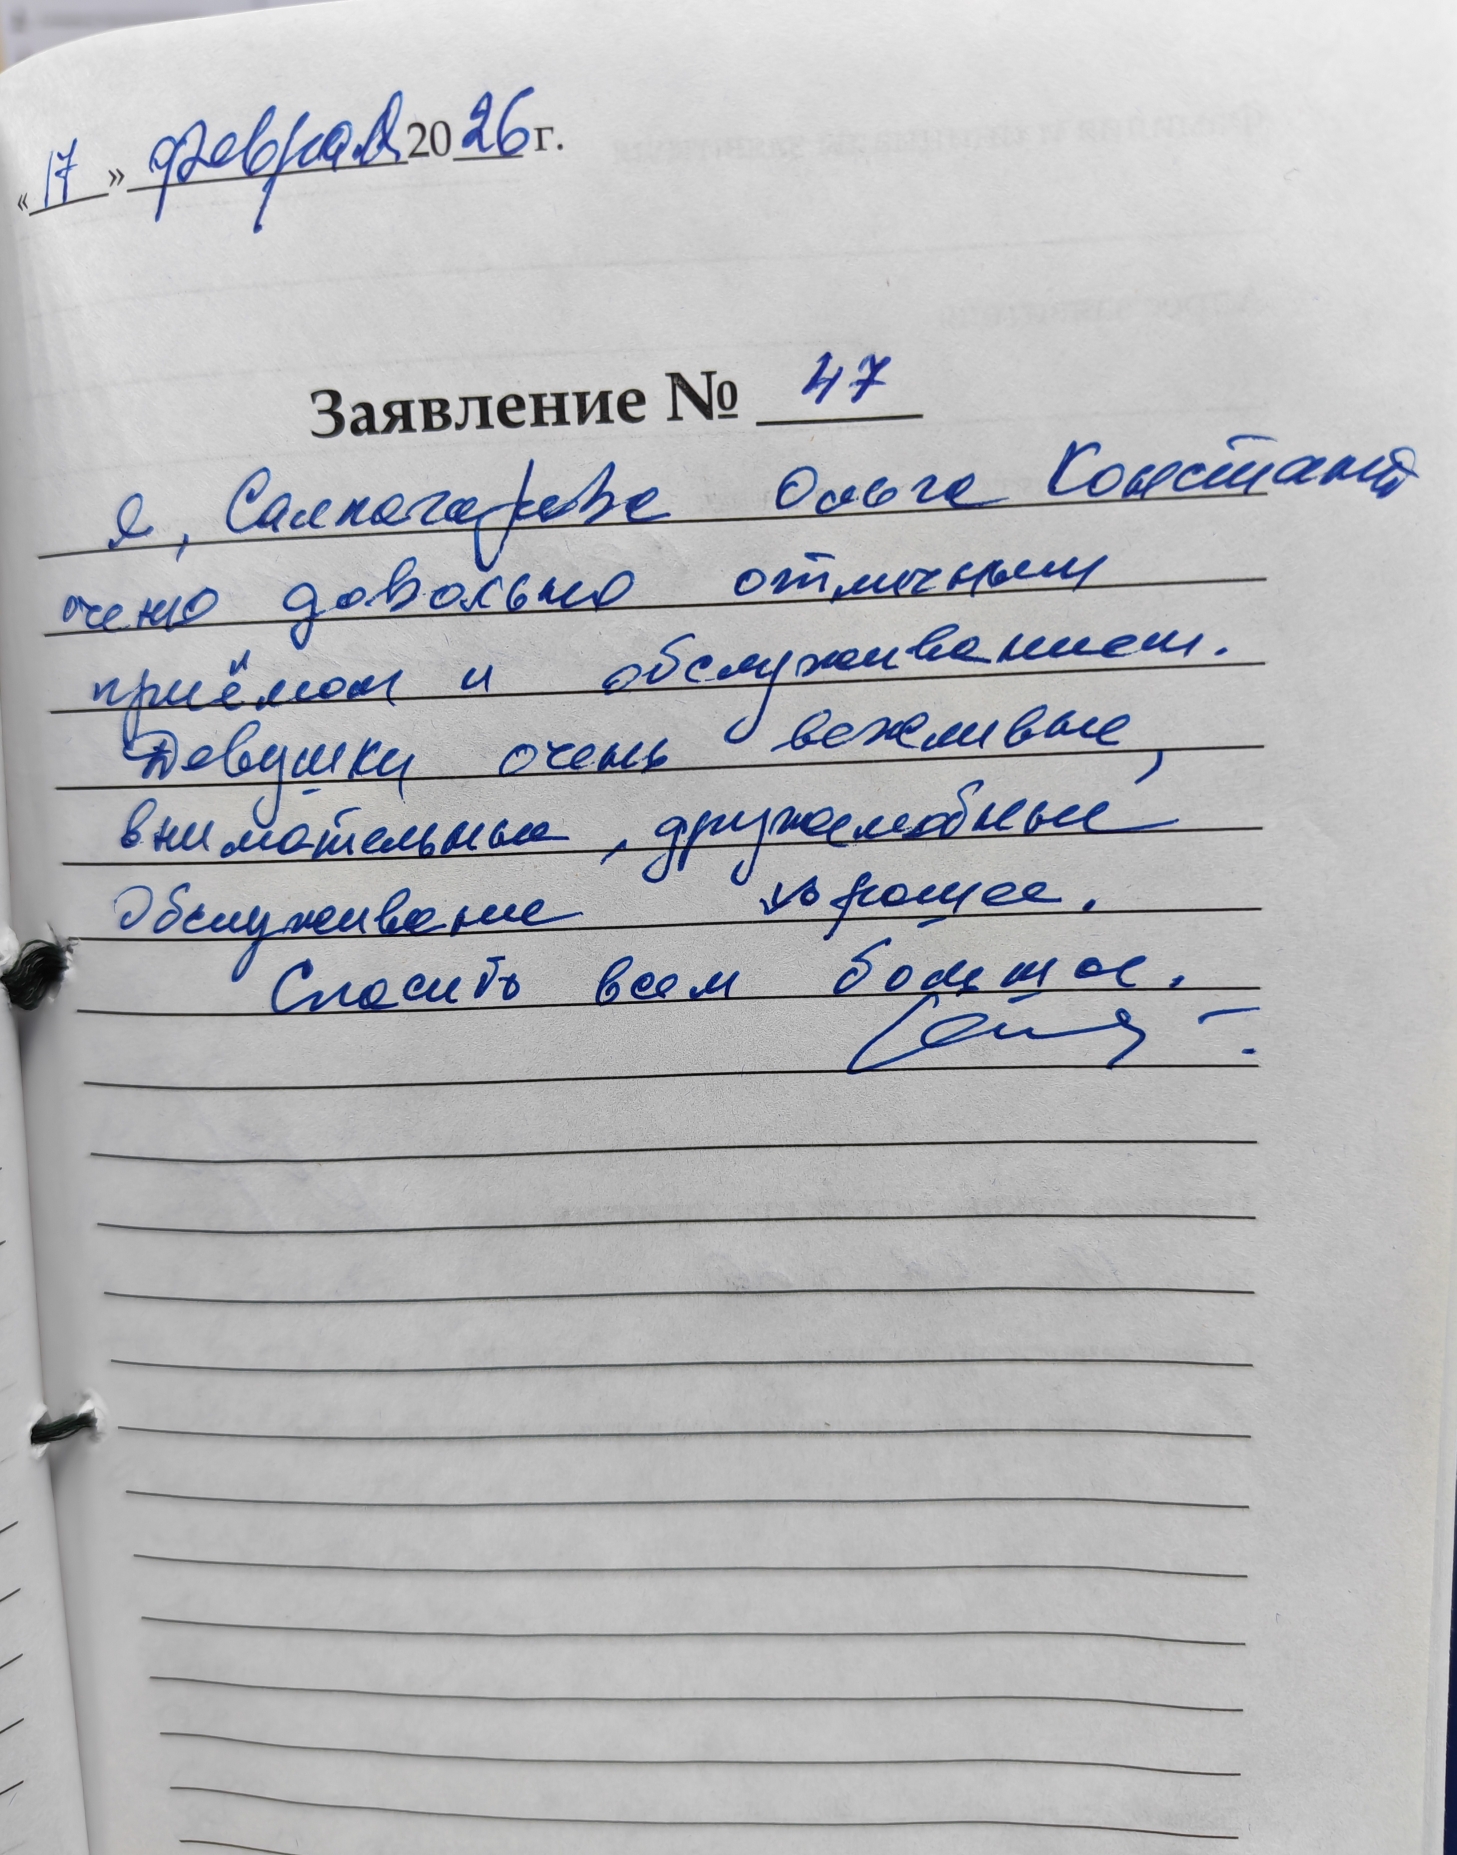 «17» февраля 2026 г.
Заявление № 47
Я, Салпагарова Ольга Констант
очень довольно отличным
приёмом и обслуживанием.
Девушки очень вежливые,
внимательные, дружелюбные
Обслуживание хорошее.
Спасибо всем большое.